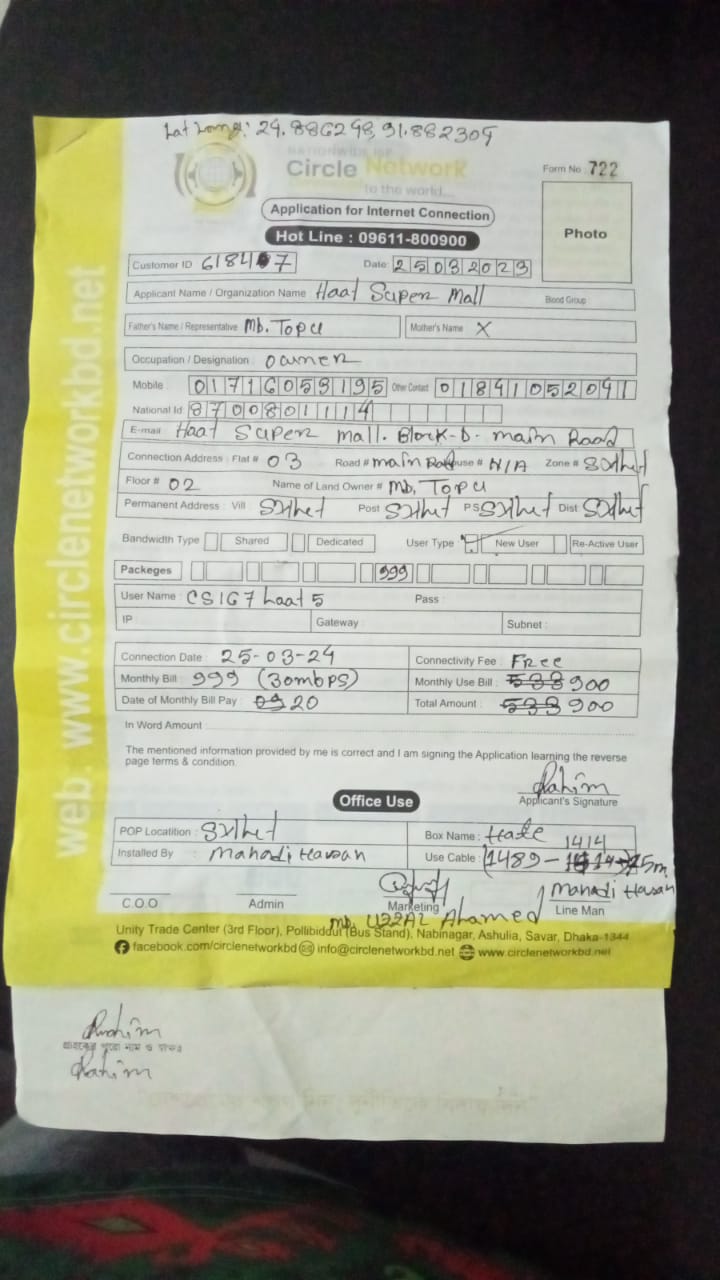 Lat Long: 24.886298,91.882309
NATIONWIDE ISP
Circle Network
to the world...
Form No : 722
Application for Internet Connection
Photo
Hot Line : 09611-800900
Customer ID 618457 Date: 25032023
Applicant Name / Organization Name Haat Super Mall Blood Group
Father's Name / Representative Md. Topu Mother's Name X
Occupation / Designation : owner
Mobile : 01716053195 Other Contact 01841052041
National Id 8700801114
E-mail Haat Super mall. Block-D- main Road
Connection Address : Flat # 03 Road # main Road House # N/A Zone # Sylhet
Floor # 02 Name of Land Owner # Md. Topu
Permanent Address : Vill Sylhet Post Sylhet PS Sylhet Dist Sylhet
Bandwidth Type Shared Dedicated User Type New User Re-Active User
Packeges 999
User Name : Pass :
IP Gateway : Subnet :
Connection Date : 25-03-24 Connectivity Fee : Free
Monthly Bill : 999 (30mbps) Monthly Use Bill : 533 900
Date of Monthly Bill Pay : 20 Total Amount : 533 900
In Word Amount
The mentioned information provided by me is correct and I am signing the Application learning the reverse
page terms & condition.
Rahim
Applicant's Signature
Office Use
POP Locatition : Sylhet Box Name :
Installed By : Mahadi Hasan Use Cable : 1414
Mahadi Hasan
C.O.O Admin Marketing Line Man
Ahamed
Unity Trade Center (3rd Floor), Pollibiddut (Bus Stand), Nabinagar, Ashulia, Savar, Dhaka-1344
facebook.com/circlenetworkbd info@circlenetworkbd.net www.circlenetworkbd.net
web. www.circlenetworkbd.net
Rahim
গ্রাহকের পুরো নাম ও স্বাক্ষর
Rahim